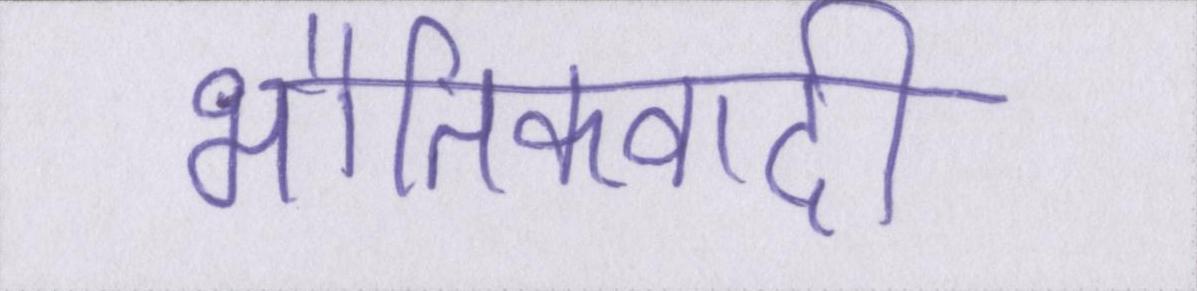 भौतिकवादी